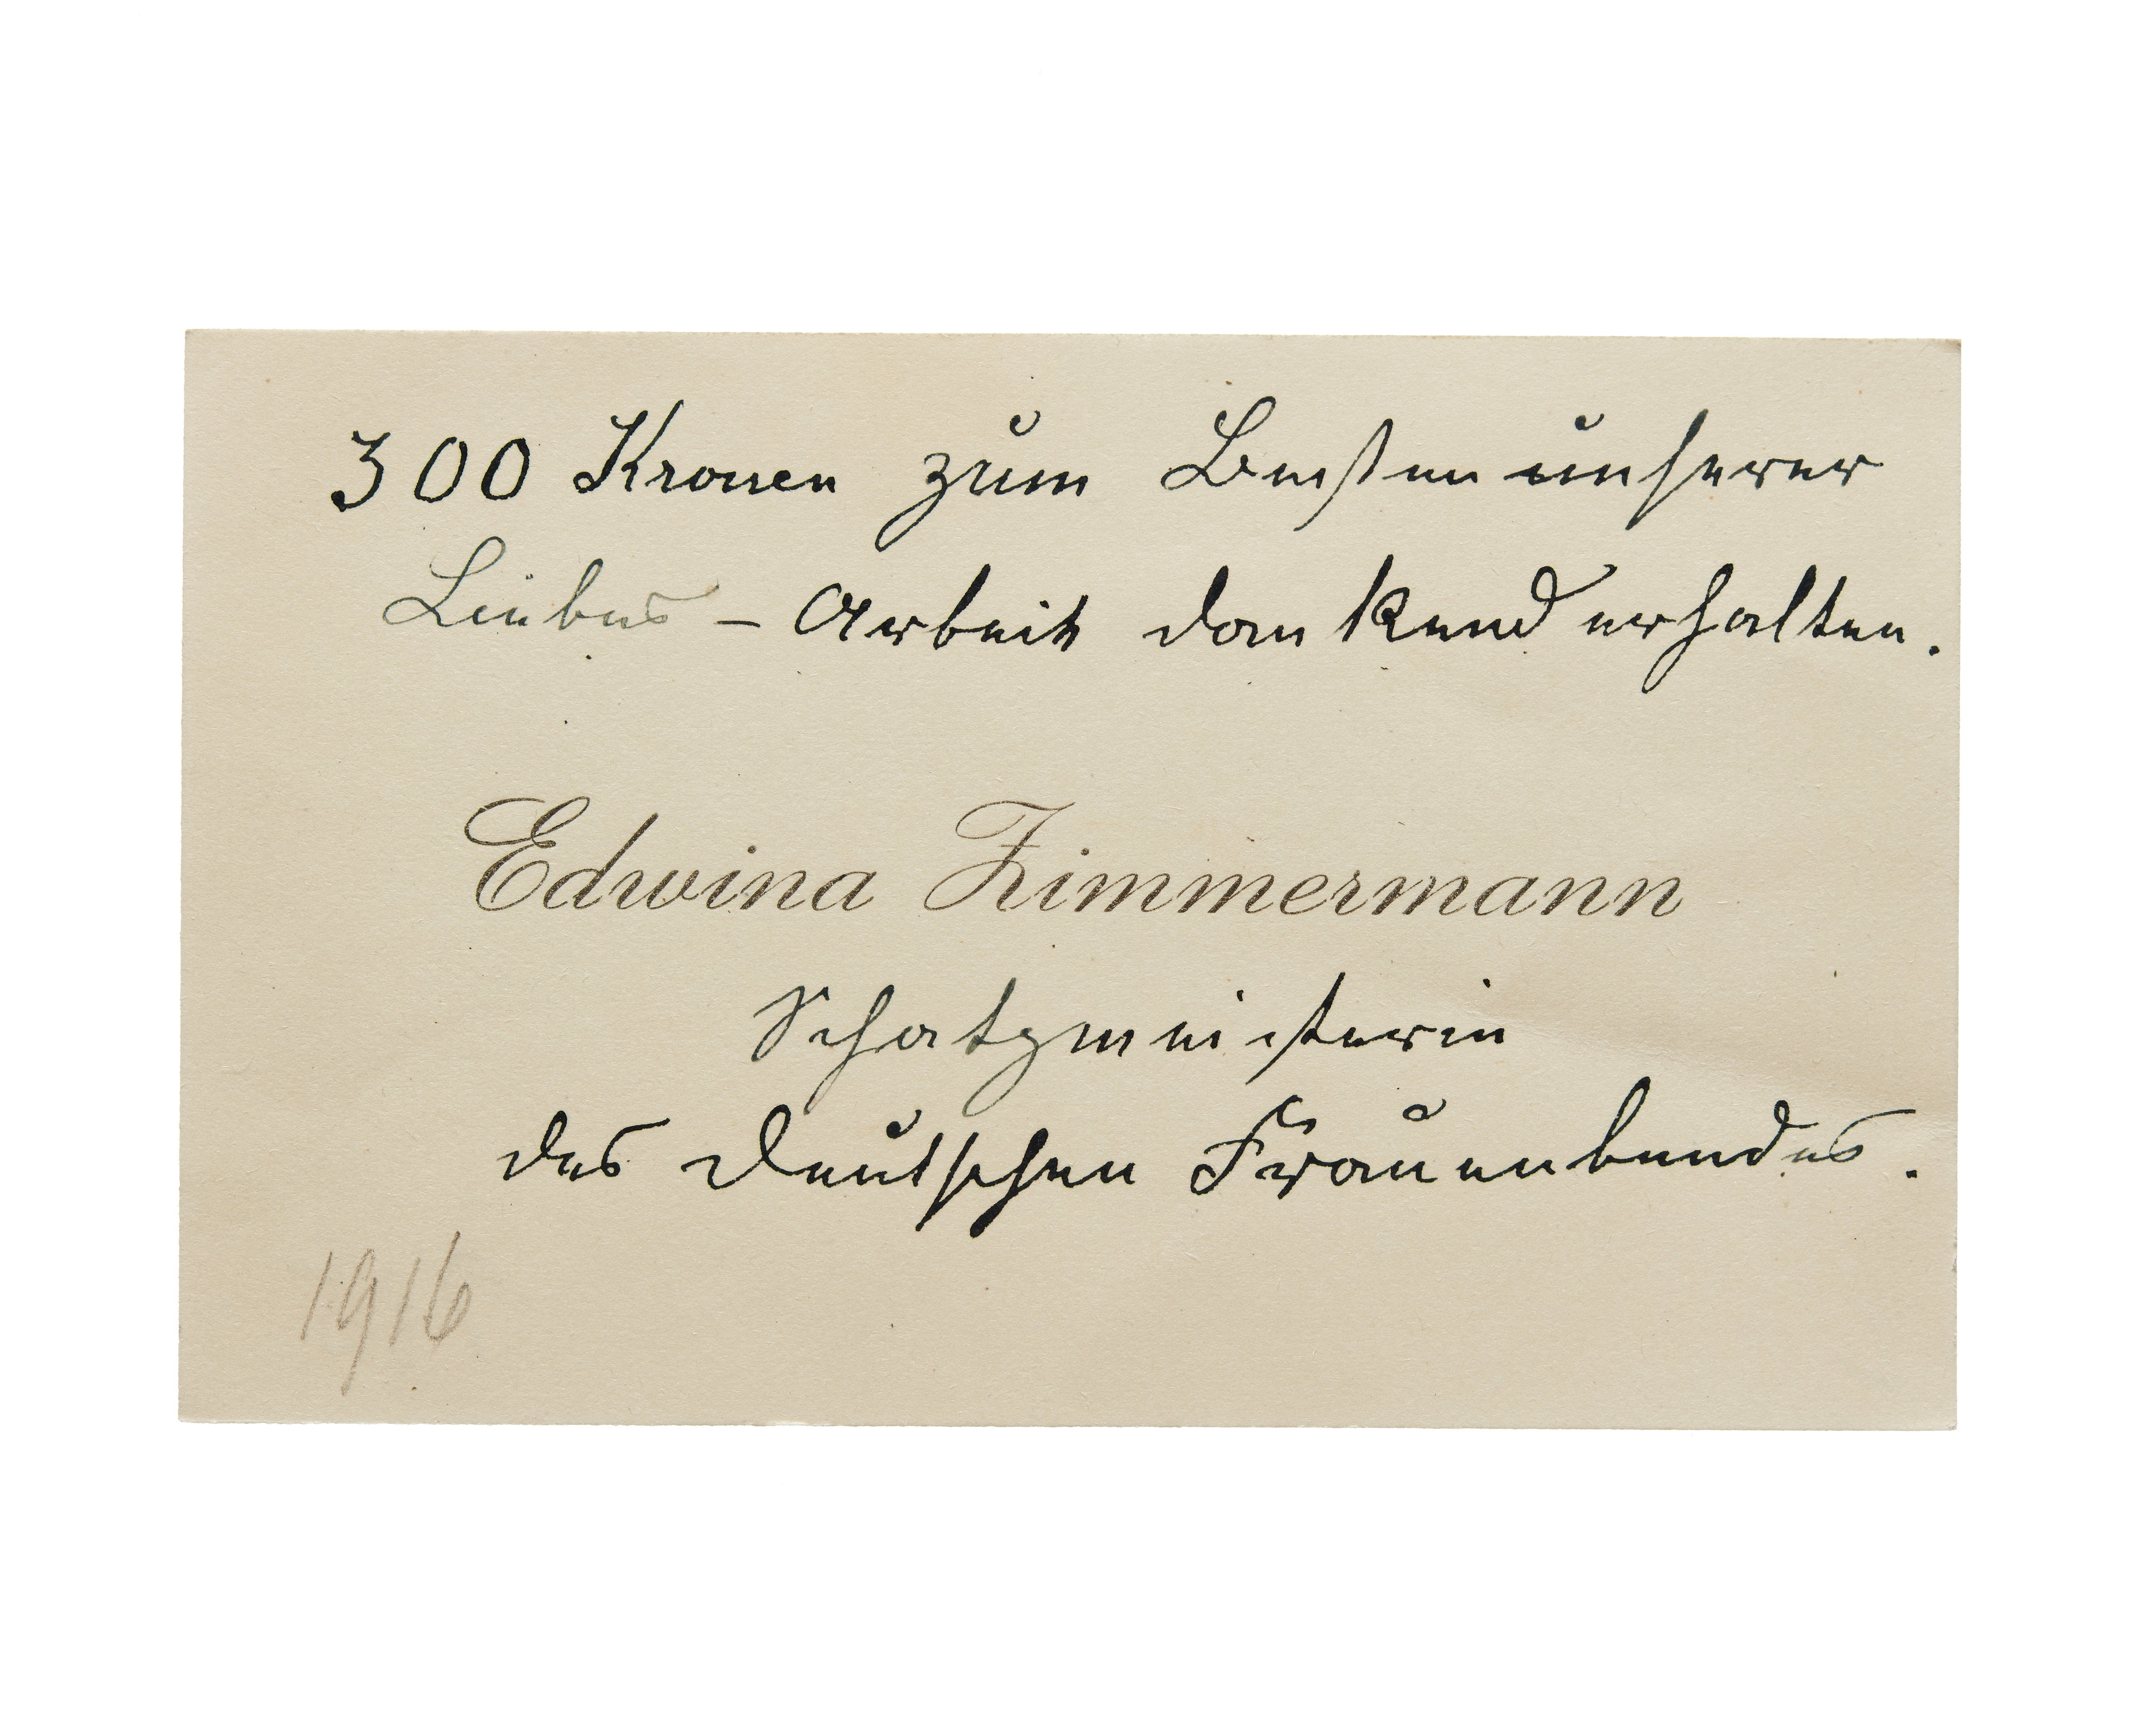 300 Kronen zum Besten unserer
Liebes - Arbeit dankend erhalten.
Edwina Zimmermann
Schatzmeisterin
des Deutschen Frauenbundes.
1916